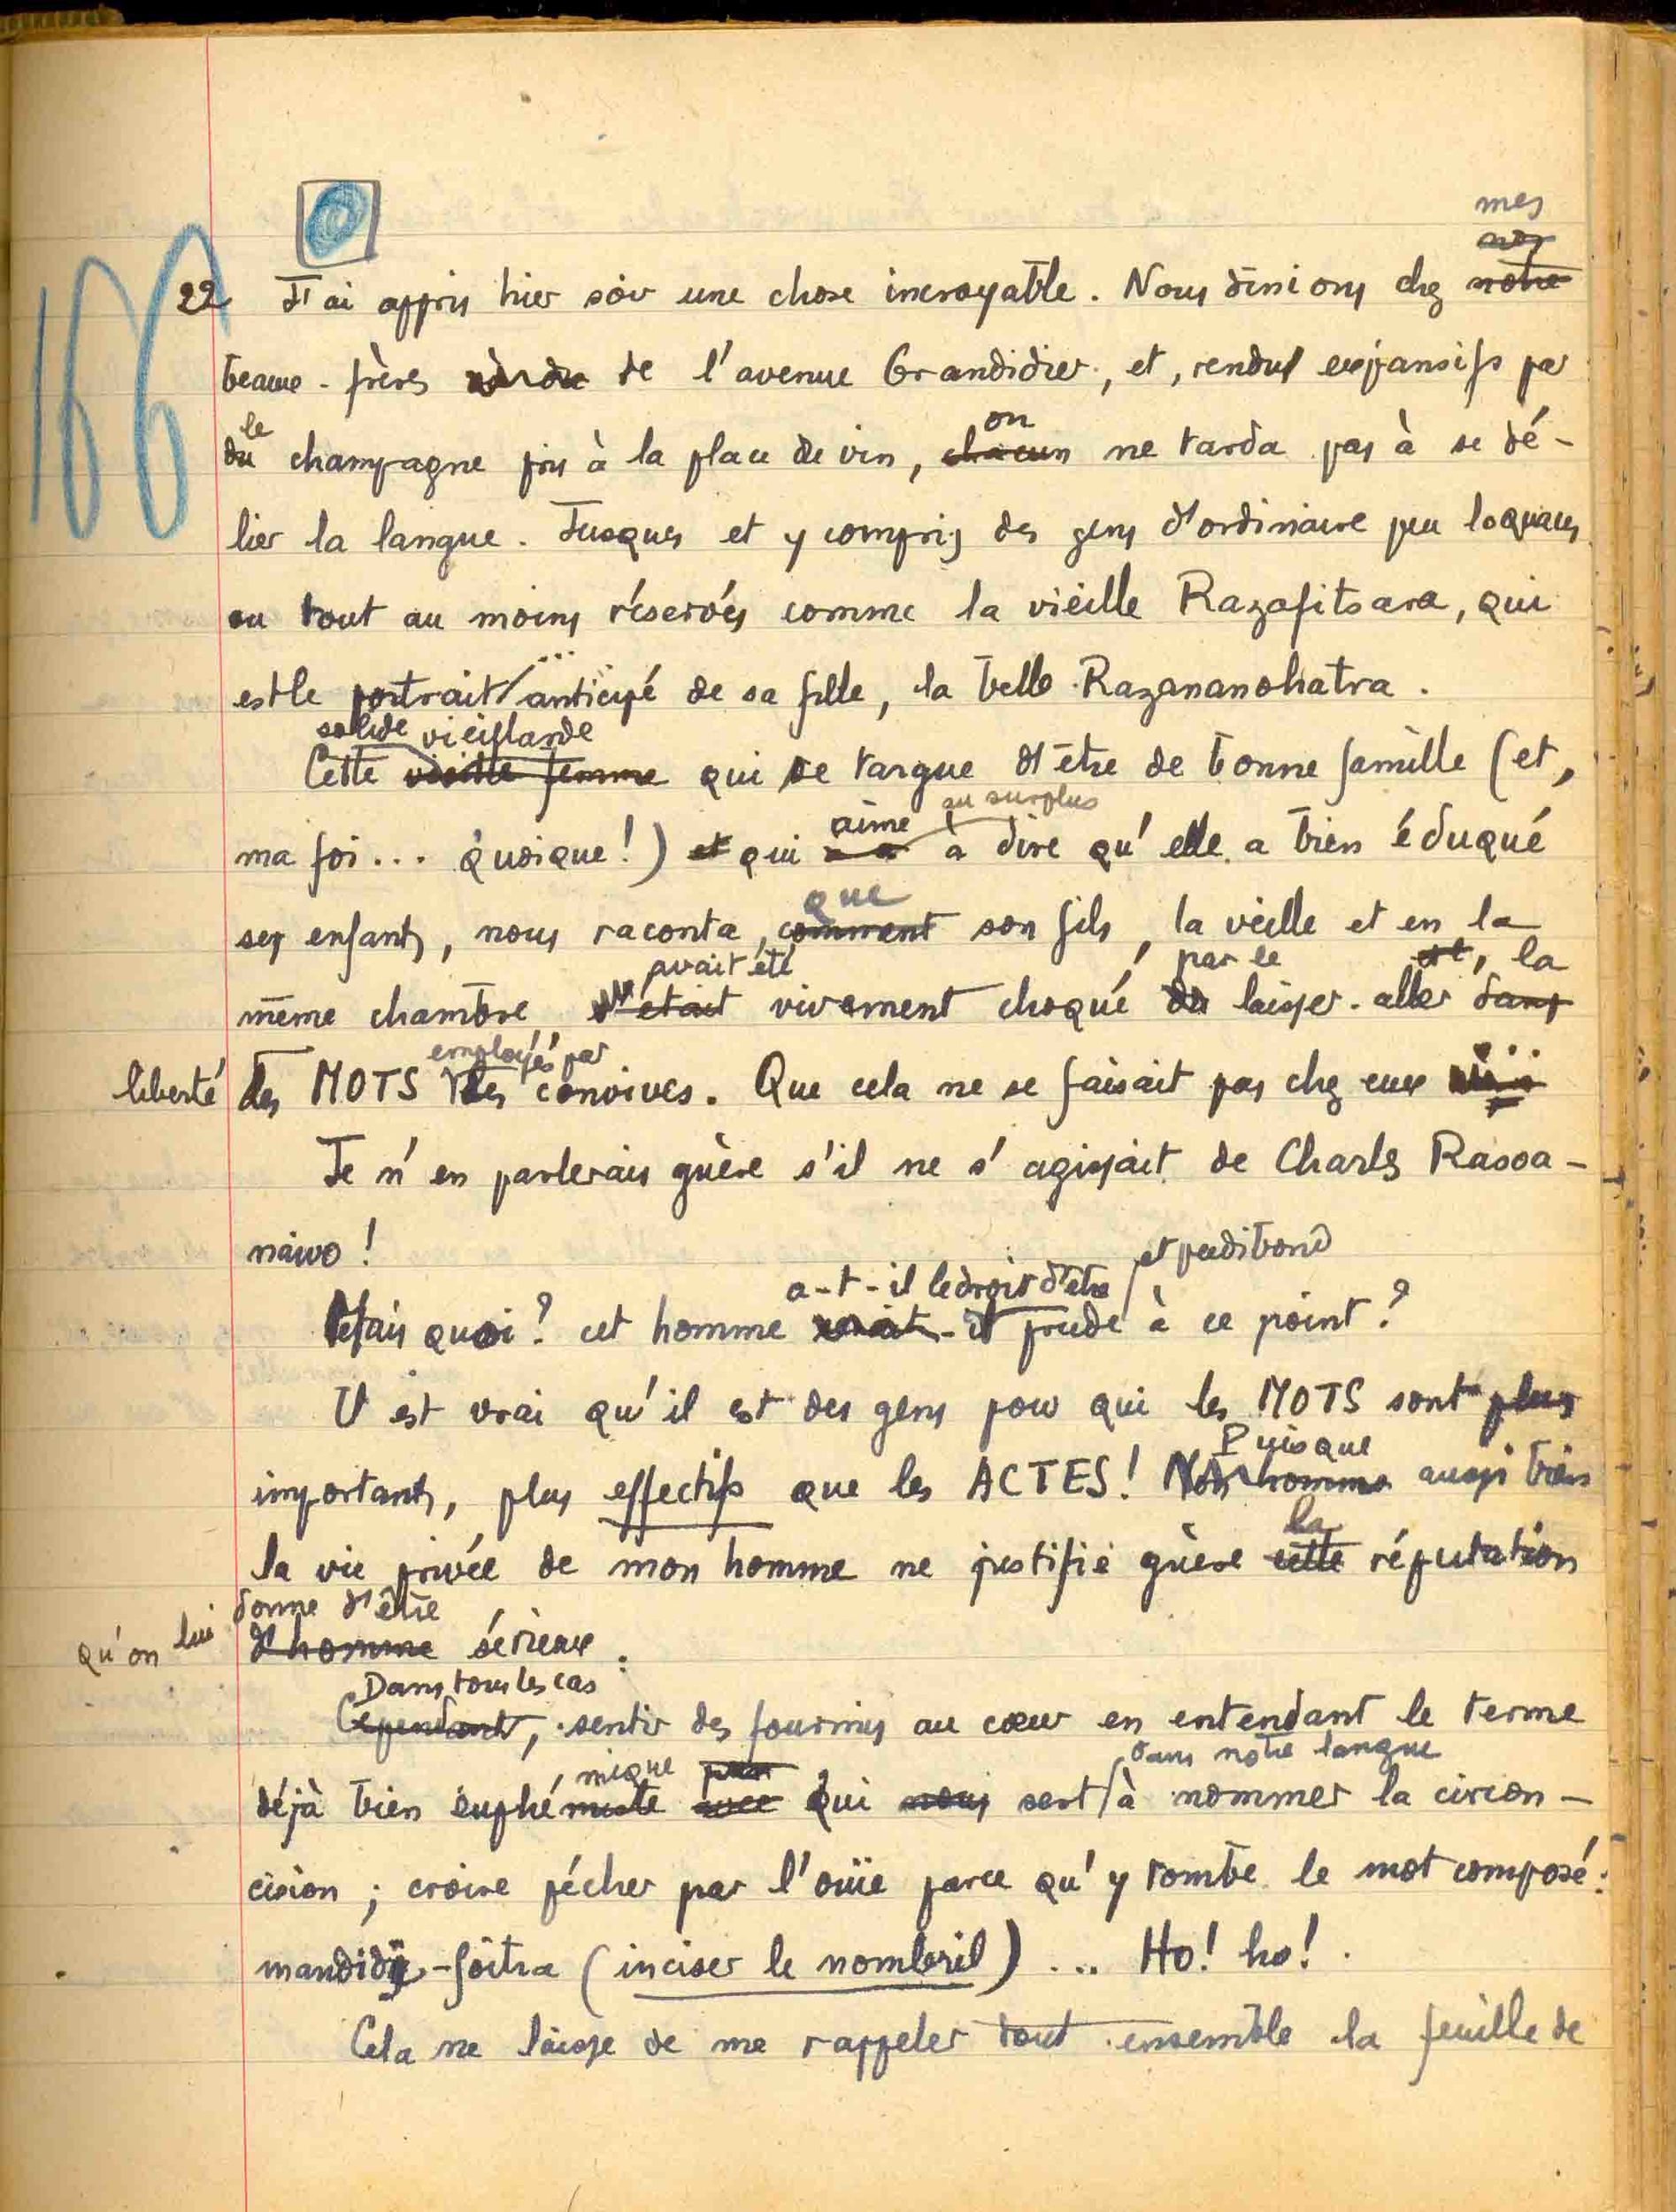 166
mes
22 J'ai appris hier soir une chose incroyable. Nous dînions chez notre
beaux-frères de l'avenue Grandidier, et, rendus expansifs par
le on
du champagne pris à la place de vin, chacun ne tarda pas à se dé-
lier la langue. Jusques et y compris des gens d'ordinaire peu loquaces
ou tout au moins réservés comme la vieille Razafitsara, qui
est le portrait... anticipé de sa fille, la belle Razananohatra.
solide vieillarde
Cette vieille femme qui se targue d'être de bonne famille (et,
aime au surplus
ma foi... quoique!) et qui a à dire qu'elle a bien éduqué
que
ses enfants, nous raconta, comment son fils, la veille et en la
avait été par le et, la
même chambre, s'était vivement choqué du laisser-aller dans
employés par
liberté des MOTS des convives. Que cela ne se faisait pas chez eux...
Je n'en parlerais guère s'il ne s'agissait de Charles Rasoa-
naivo!
a-t-il le droit d'être et pudibond
Mais quoi? cet homme serait-il prude à ce point?
Il est vrai qu'il est des gens pour qui les MOTS sont plus
Puisque
importants, plus effectifs que les ACTES! homme aussi bien
la
la vie privée de mon homme ne justifie guère cette réputation
donne d'être
qu'on lui d'homme sérieux.
Dans tous les cas
Cependant, sentir des fourmis au cœur en entendant le terme
mique par dans notre langue
déjà bien euphémiste avec qui nous sert à nommer la circon-
cision; croire pécher par l'ouïe parce qu'y tombe le mot composé:
mandidy-foitra (inciser le nombril)... Ho! ho!
Cela ne laisse de me rappeler tout ensemble la feuille de